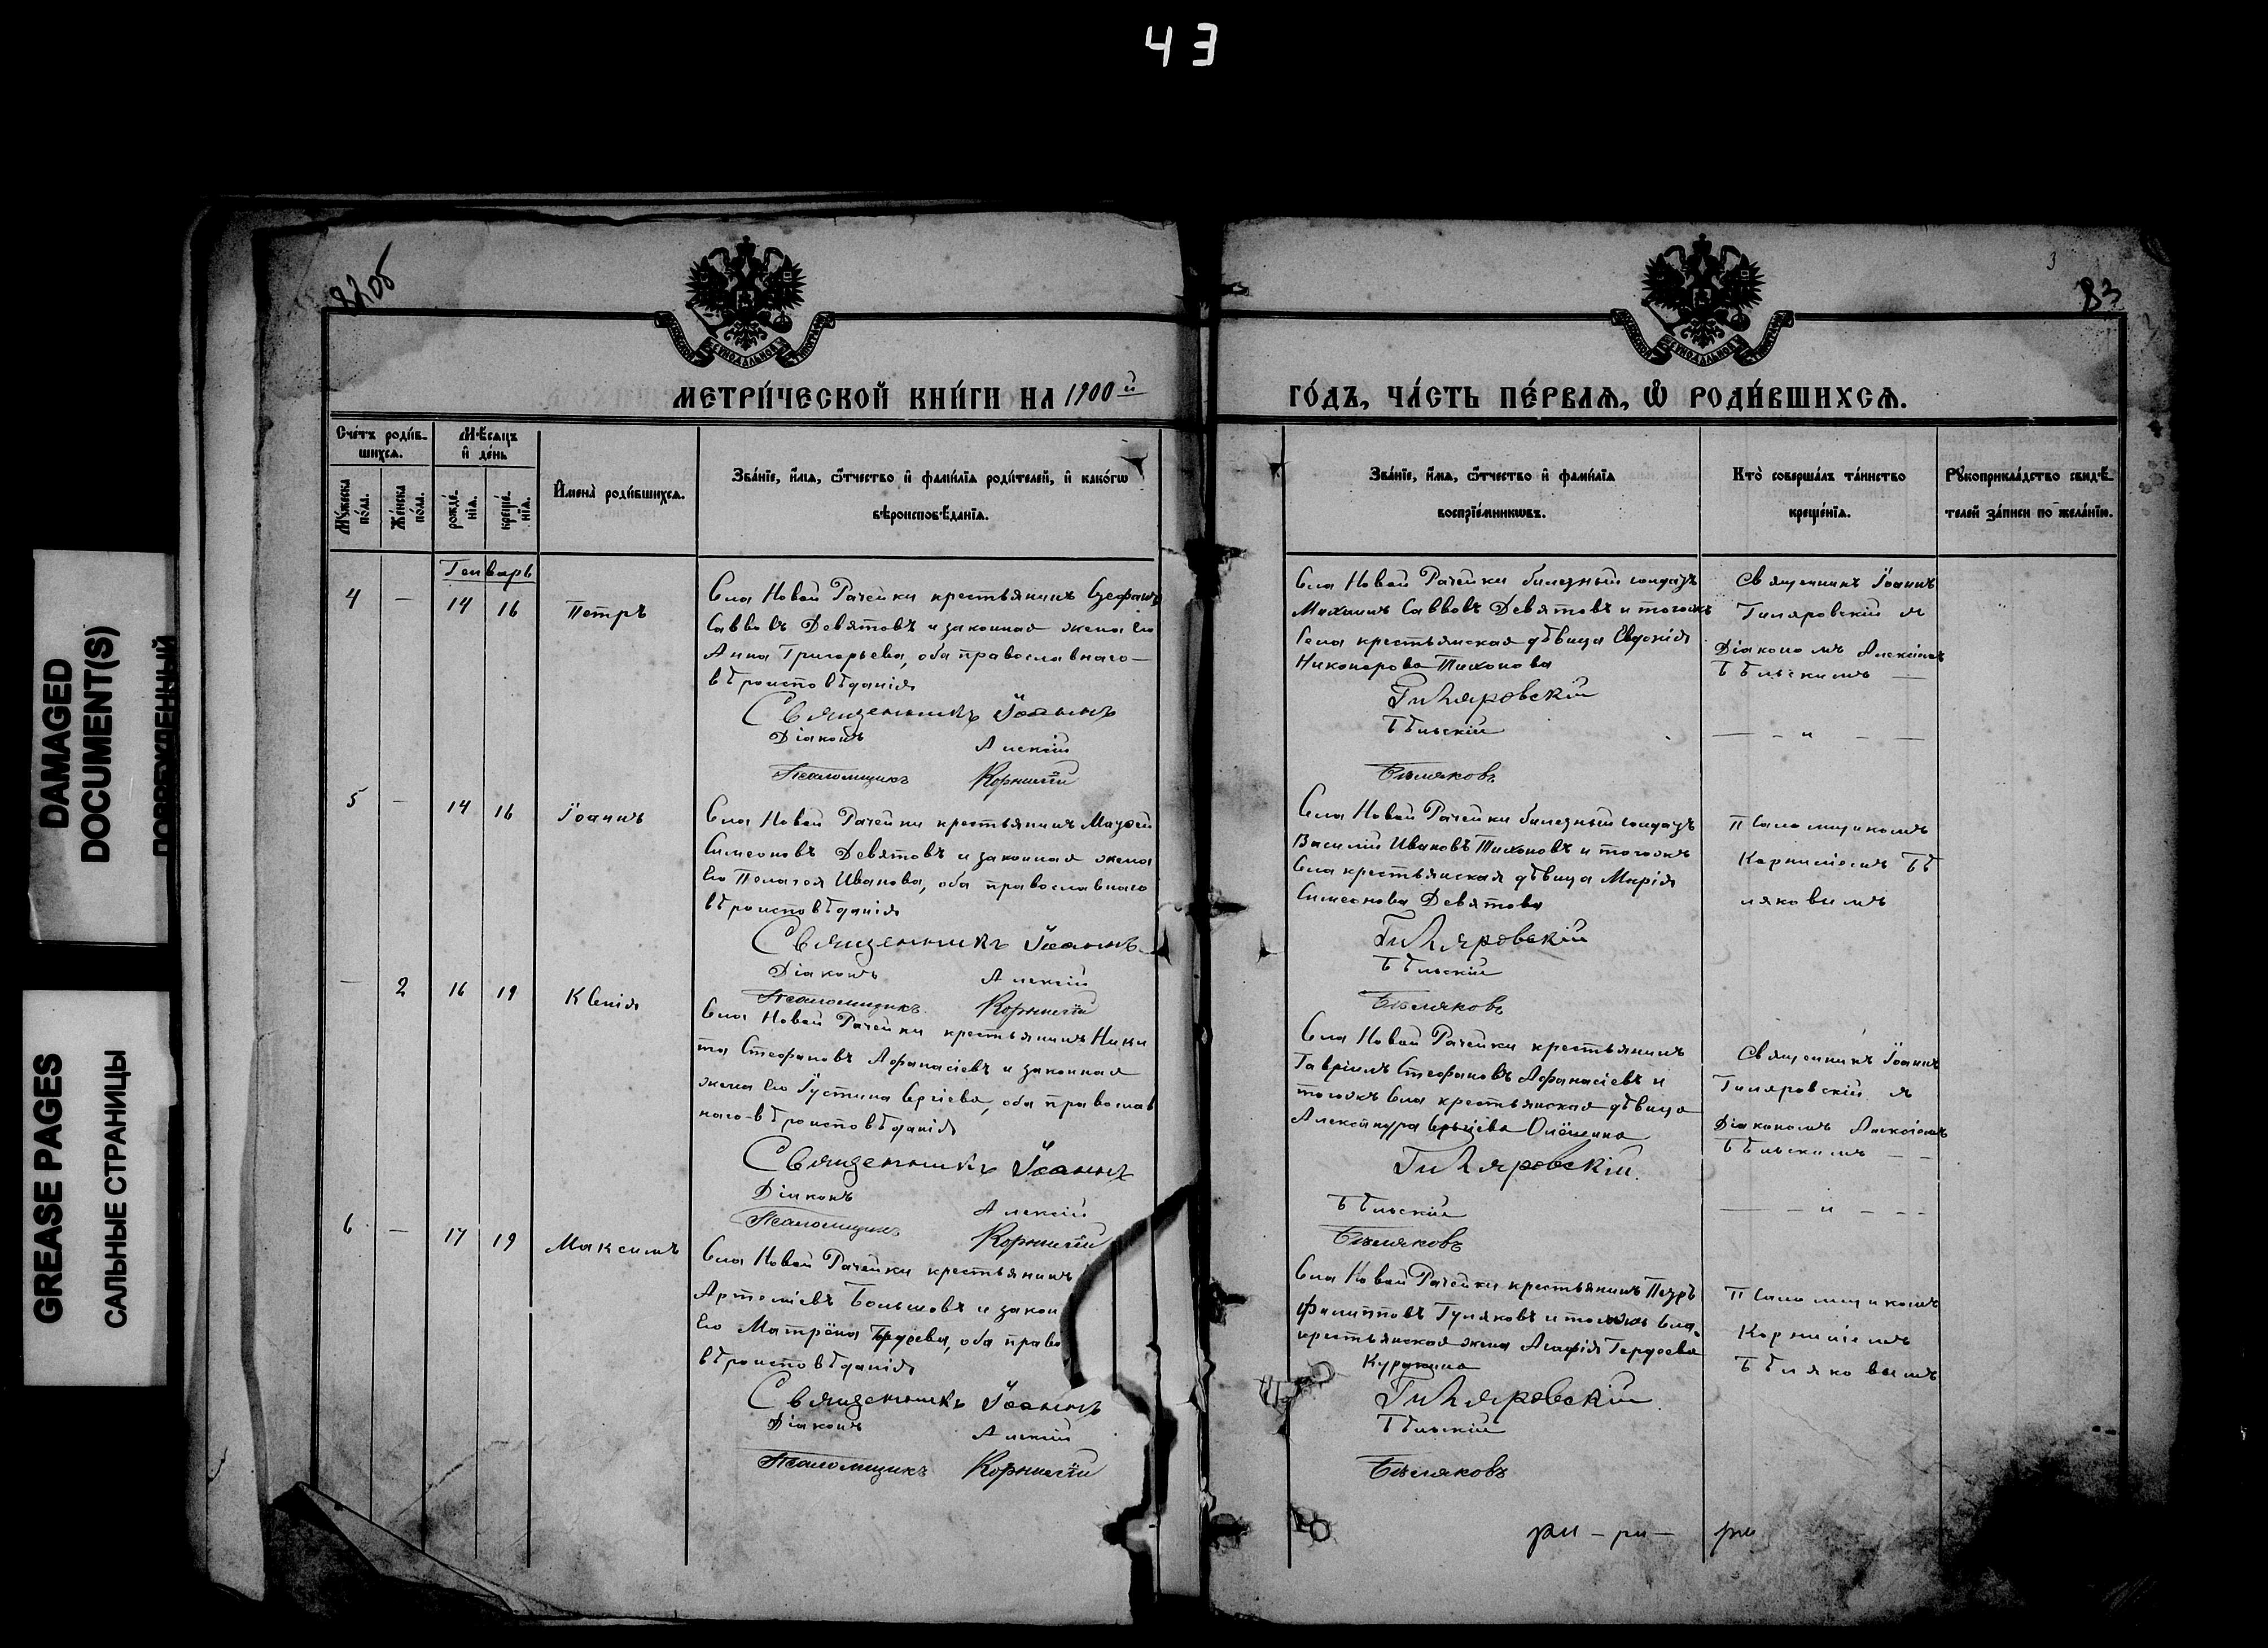 43
DAMAGED
DOCUMENT(S)
GREASE PAGES
САЛЬНЫЕ СТРАНИЦЫ
82об
3
83
МЕТРИ́ЧЕСКОЙ КНИ́ГИ НА 1900й
ГО́ДЪ, ЧА́СТЬ ПЕ́РВАѦ, Ѽ РОДИ́ВШИХСѦ.
Сче́тъ роди́в-
шихсѧ.
Мѣсѧцъ
и҆ де́нь
Мꙋ́жеска
по́ла.
Же́нска
по́ла.
рожде́-
нїѧ.
креще́-
нїѧ.
И҆мена̀ роди́вшихсѧ.
Зва́нїе, и҆́мѧ, ѻ҆́тчество и҆ фами́лїѧ роди́телей, и҆ како́гѡ
вѣроисповѣ́данїѧ.
Зва́нїе, и҆́мѧ, ѻ҆́тчество и҆ фами́лїѧ
воспрїе́мникѡвъ.
Кто̀ соверша́лъ та́инство
креще́нїѧ.
Рꙋкоприкла́дство свидѣ́-
телей за́писи по жела́нїю.
Генварь
4 — 14 16 Петръ
Села Новой Рачейки крестьянинъ Стефанъ
Саввовъ Девятовъ и законная жена его
Анна Григорьева, оба православнаго-
вѣроисповѣданія
Священникъ Іоаннъ
Діаконъ Алексій
Псаломщикъ Корнилій
Села Новой Рачейки билетный солдатъ
Михаилъ Саввовъ Девятовъ и тогожъ
Села крестьянская дѣвица Евдокія
Никонорова Тихонова
Гиляровскій
Бѣльскій
Бѣляковъ
Священникъ Іоаннъ
Гиляровскій съ
Діакономъ Алексіемъ
Бѣльскимъ —
— - „ - —
5 — 14 16 Іоаннъ
Села Новой Рачейки крестьянинъ Матѳей
Симеоновъ Девятовъ и законная жена
его Пелагея Иванова, оба православнаго
вѣроисповѣданія
Священникъ Іоаннъ
Діаконъ Алексій
Псаломщикъ Корнилій
Села Новой Рачейки билетный солдатъ
Василій Ивановъ Тихоновъ и тогожъ
Села крестьянская дѣвица Марія
Симеонова Девятова
Гиляровскій
Бѣльскій
Бѣляковъ
Псаломщикомъ
Корниліемъ Бѣ
ляковымъ
— 2 16 19 Ксенія
Села Новой Рачейки крестьянинъ Ники
та Стефановъ Афанасіевъ и законная
жена его Іустина Сергіева, оба православ
наго-вѣроисповѣданія
Священникъ Іоаннъ
Діаконъ Алексій
Псаломщикъ Корнилій
Села Новой Рачейки крестьянинъ
Гавріилъ Стефановъ Афанасіевъ и
тогожъ Села крестьянская дѣвица
Александра Сергіева
Гиляровскій
Бѣльскій
Бѣляковъ
Священникъ Іоаннъ
Гиляровскій съ
Діакономъ Алексіемъ
Бѣльскимъ — -
— - „ - - -
6 — 17 19 Максимъ
Села Новой Рачейки крестьянинъ
Артеміевъ Большовъ и закон
его Матрёна оба право
вѣроисповѣданія
Священникъ Іоаннъ
Діаконъ Алексій
Псаломщикъ Корнилій
Села Новой Рачейки крестьянинъ Петръ
Филипповъ Гуляковъ и тогожъ Села
крестьянская жена Агафія
Гиляровскій
Бѣльскій
Бѣляковъ
Псаломщикомъ
Корниліемъ
Бѣляковымъ